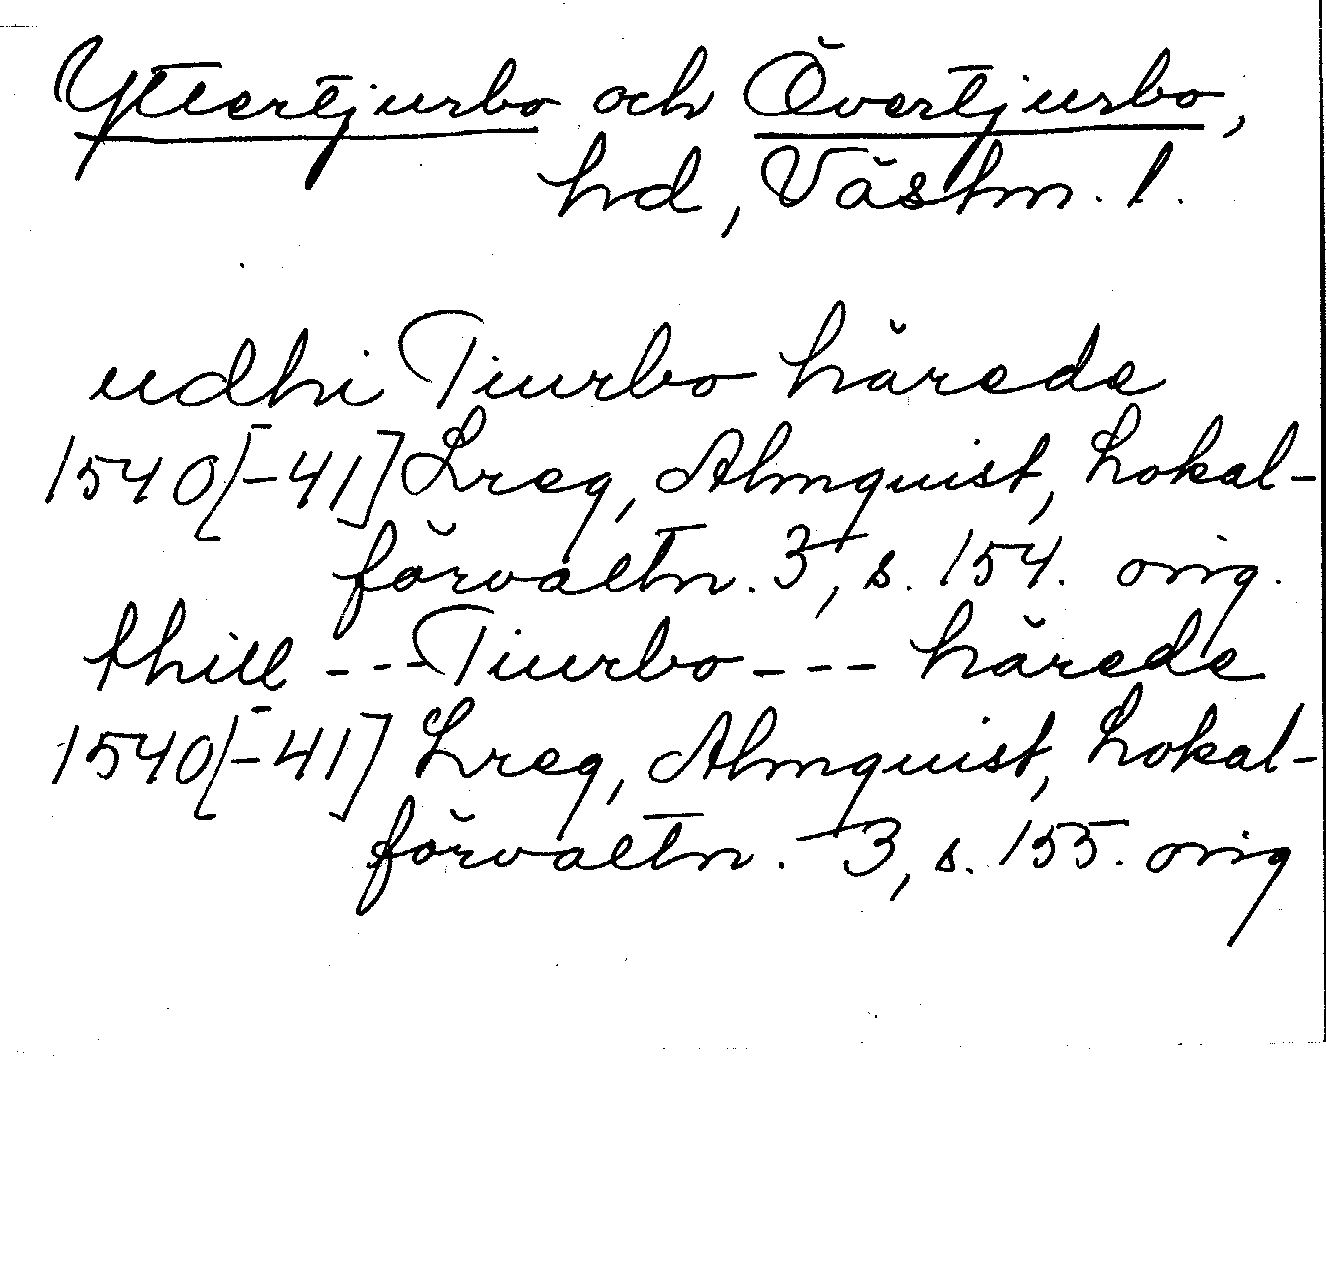 Yttertjurbo och Övertjurbo,
hd, Västm. l.
udhi Tiurbo härede
1540[-41] Lreg, Almquist, Lokal-
förvaltn. 3, s. 154. orig.
thill --- Tiurbo --- härede
1540[-41] Lreg, Almquist, Lokal-
förvaltn. 3, s. 155. orig